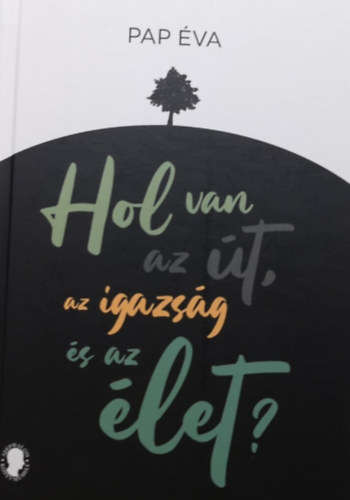 PAP ÉVA
Hol van
az út,
az igazság
és az
élet?